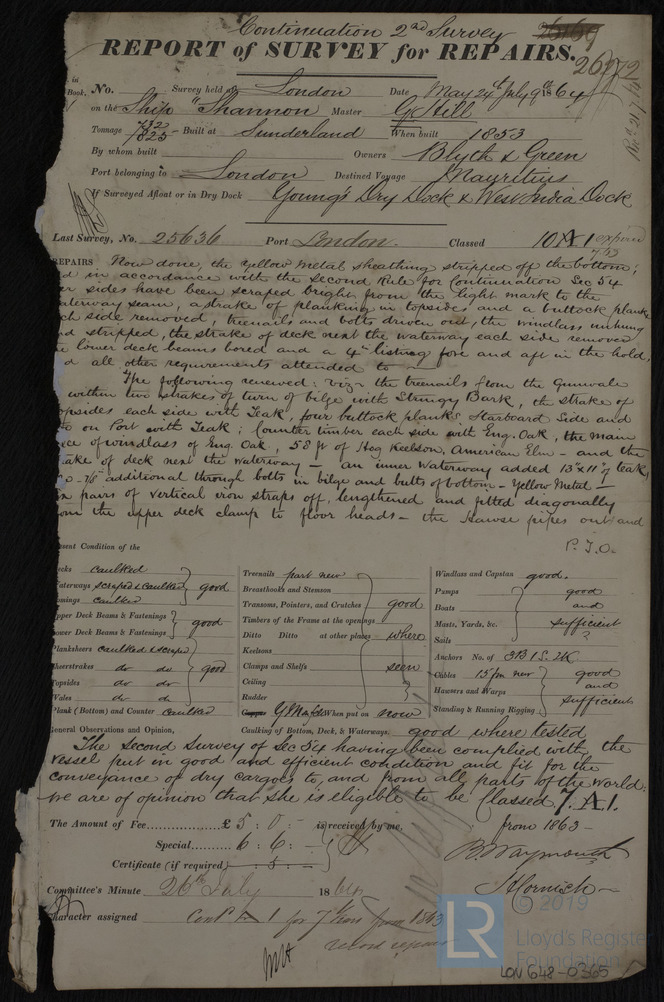 Continuation 2nd Survey
REPORT of SURVEY for REPAIRS. 26972
in
Book. No. Survey held at London Date May 24th July 9th 1864
on the Ship "Shannon" Master G Hill
Tonnage 732 / 823 Built at Sunderland When built 1853
By whom built Owners Blyth & Green
Port belonging to London Destined Voyage Mauritius
If Surveyed Afloat or in Dry Dock Young's Dry Dock & West India Dock
Last Survey, No. 25636 Port London. Classed 10 A 1 expired
REPAIRS Now done, the yellow metal sheathing stripped off the bottom;
d in accordance with the Second Rule for Continuation Sec 54
er sides have been scraped bright from the light mark to the
aterway seam, a strake of planking in topsides and a buttock plank
ch side removed, treenails and bolts driven out, the windlass unhung
nd stripped, the strake of deck next the waterway each side removed
e lower deck beams bored and a 4in listing fore and aft in the hold,
d all other requirements attended to
The following renewed: viz the treenails from the Gunwale
within two strakes of turn of bilge with Stringy Bark, the strake of
opsides each side with Teak, four buttock planks Starboard Side and
on Port with Teak; Counter timber each side with Eng. Oak, the main
ce of windlass of Eng. Oak, 58 ft of Keelson, American Elm - and the
rake of deck next the waterway - an inner Waterway added 13 x 11 of teak,
7/8 additional through bolts in bilge and butts of bottom - Yellow Metal -
pairs of vertical iron straps off, lengthened and fitted diagonally
om the upper deck clamp to floor heads - the Hawse pipes out and
P.T.O.
esent Condition of the
ecks caulked
aterways scraped & caulked good
omings caulked
pper Deck Beams & Fastenings good
ower Deck Beams & Fastenings
lanksheers caulked & scraped
heerstrakes do do good
opsides do do
Wales do do
lank (Bottom) and Counter Caulked
Treenails part new
Breasthooks and Stemson
Transoms, Pointers, and Crutches good
Timbers of the Frame at the openings
Ditto Ditto at other places where
Keelsons
Clamps and Shelfs seen
Ceiling
Rudder
Copper Y Metal When put on now
Windlass and Capstan good.
Pumps good
Boats and
Masts, Yards, &c. sufficient
Sails
Anchors No. of 3B 1S. 2K
Cables 15 fm new good
Hawsers and Warps and
Standing & Running Rigging sufficient
eneral Observations and Opinion, Caulking of Bottom, Deck, & Waterways: good where tested
The Second Survey of Sec 54 having been complied with the
vessel put in good and efficient condition and fit for the
conveyance of dry cargoes to, and from all parts of the World;
we are of opinion that she is eligible to be Classed 7. A 1.
from 1863 -
The Amount of Fee £ 5 : 0 : - is received by me,
Special 6 : 6 : -
Certificate (if required) : 5 : -
B. Waymouth
J Cornish
Committee's Minute 26th July 1864
Character assigned Cont A 1 for 7 Years from 1863
© 2019
LR
Lloyd's Register
Foundation
LON 648-0365